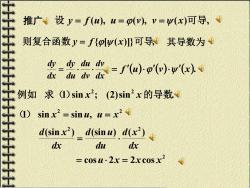 推广 设 y = f(u), u = φ(v), v = ψ(x)可导,
则复合函数 y = f{φ[ψ(x)]}可导, 其导数为
dy/dx = dy/du · du/dv · dv/dx = f′(u)·φ′(v)·ψ′(x).
例如 求 (1) sin x²; (2) sin² x 的导数
(1) sin x² = sin u, u = x²
d(sin x²)/dx = d(sin u)/du · d(x²)/dx
= cos u · 2x = 2x cos x²